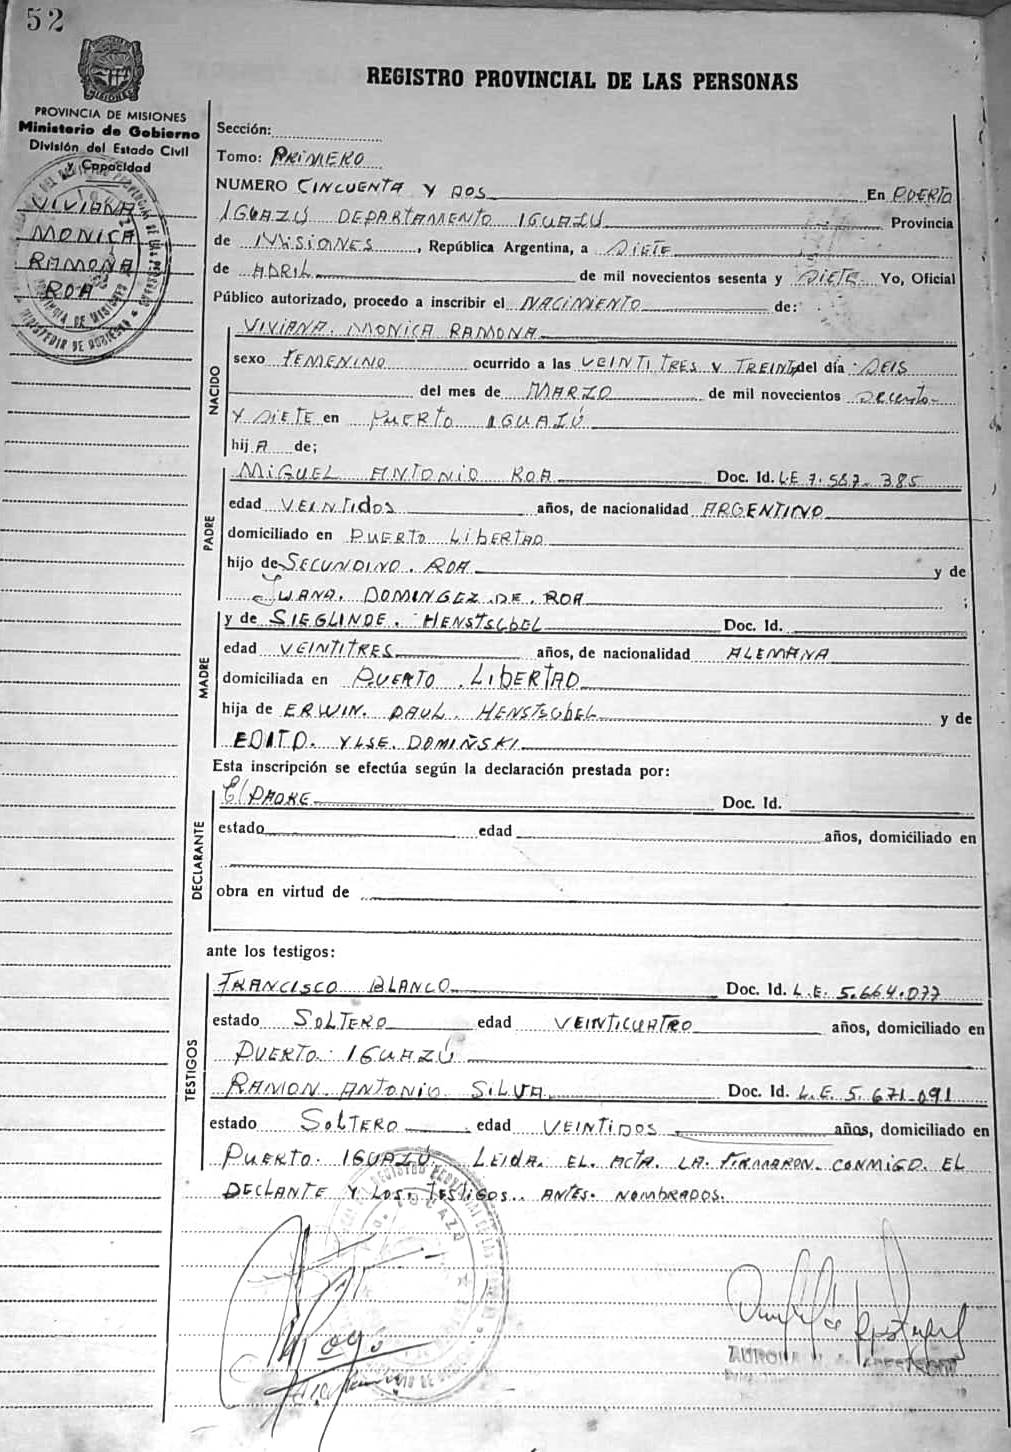 52
REGISTRO PROVINCIAL DE LAS PERSONAS
PROVINCIA DE MISIONES
Ministerio de Gobierno
División del Estado Civil
y Capacidad
VIVIANA
MONICA
RAMONA
ROA
Sección:
Tomo: PRIMERO
NUMERO CINCUENTA Y DOS En PUERTO
IGUAZÚ DEPARTAMENTO IGUAZÚ Provincia
de MISIONES, República Argentina, a SIETE
de ABRIL de mil novecientos sesenta y SIETE Yo, Oficial
Público autorizado, procedo a inscribir el NACIMIENTO de:
NACIDO
VIVIANA. MONICA RAMONA
sexo FEMENINO ocurrido a las VEINTITRES Y TREINTA del día SEIS
del mes de MARZO de mil novecientos
Y SIETE en PUERTO IGUAZÚ
hij A de;
PADRE
MIGUEL ANTONIO ROA Doc. Id. L.E 7.567.385
edad VEINTIDOS años, de nacionalidad ARGENTINO
domiciliado en PUERTO LIBERTAD
hijo de SECUNDINO. ROA y de
JUANA. DOMINGEZ. DE. ROA ;
MADRE
y de SIEGLINDE. HENSTSCBEL Doc. Id.
edad VEINTITRES años, de nacionalidad ALEMANA
domiciliada en PUERTO LIBERTAD
hija de ERWIN. PAUL. HENSTSCBEL y de
YLSE. DOMIÑSKI
Esta inscripción se efectúa según la declaración prestada por:
DECLARANTE
El PADRE Doc. Id.
estado edad años, domiciliado en
obra en virtud de
ante los testigos:
TESTIGOS
FRANCISCO BLANCO Doc. Id. L.E. 5.664.077
estado SOLTERO edad VEINTICUATRO años, domiciliado en
PUERTO IGUAZÚ
RAMON ANTONIO SILVA Doc. Id. L.E. 5.671.091
estado SOLTERO edad VEINTIDOS años, domiciliado en
PUERTO. IGUAZÚ. LEIDA. EL. ACTA. LA. FIRMARON. CONMIGO. EL
DECLANTE Y LOS. TESTIGOS. ANTES. NOMBRADOS.
AURORA